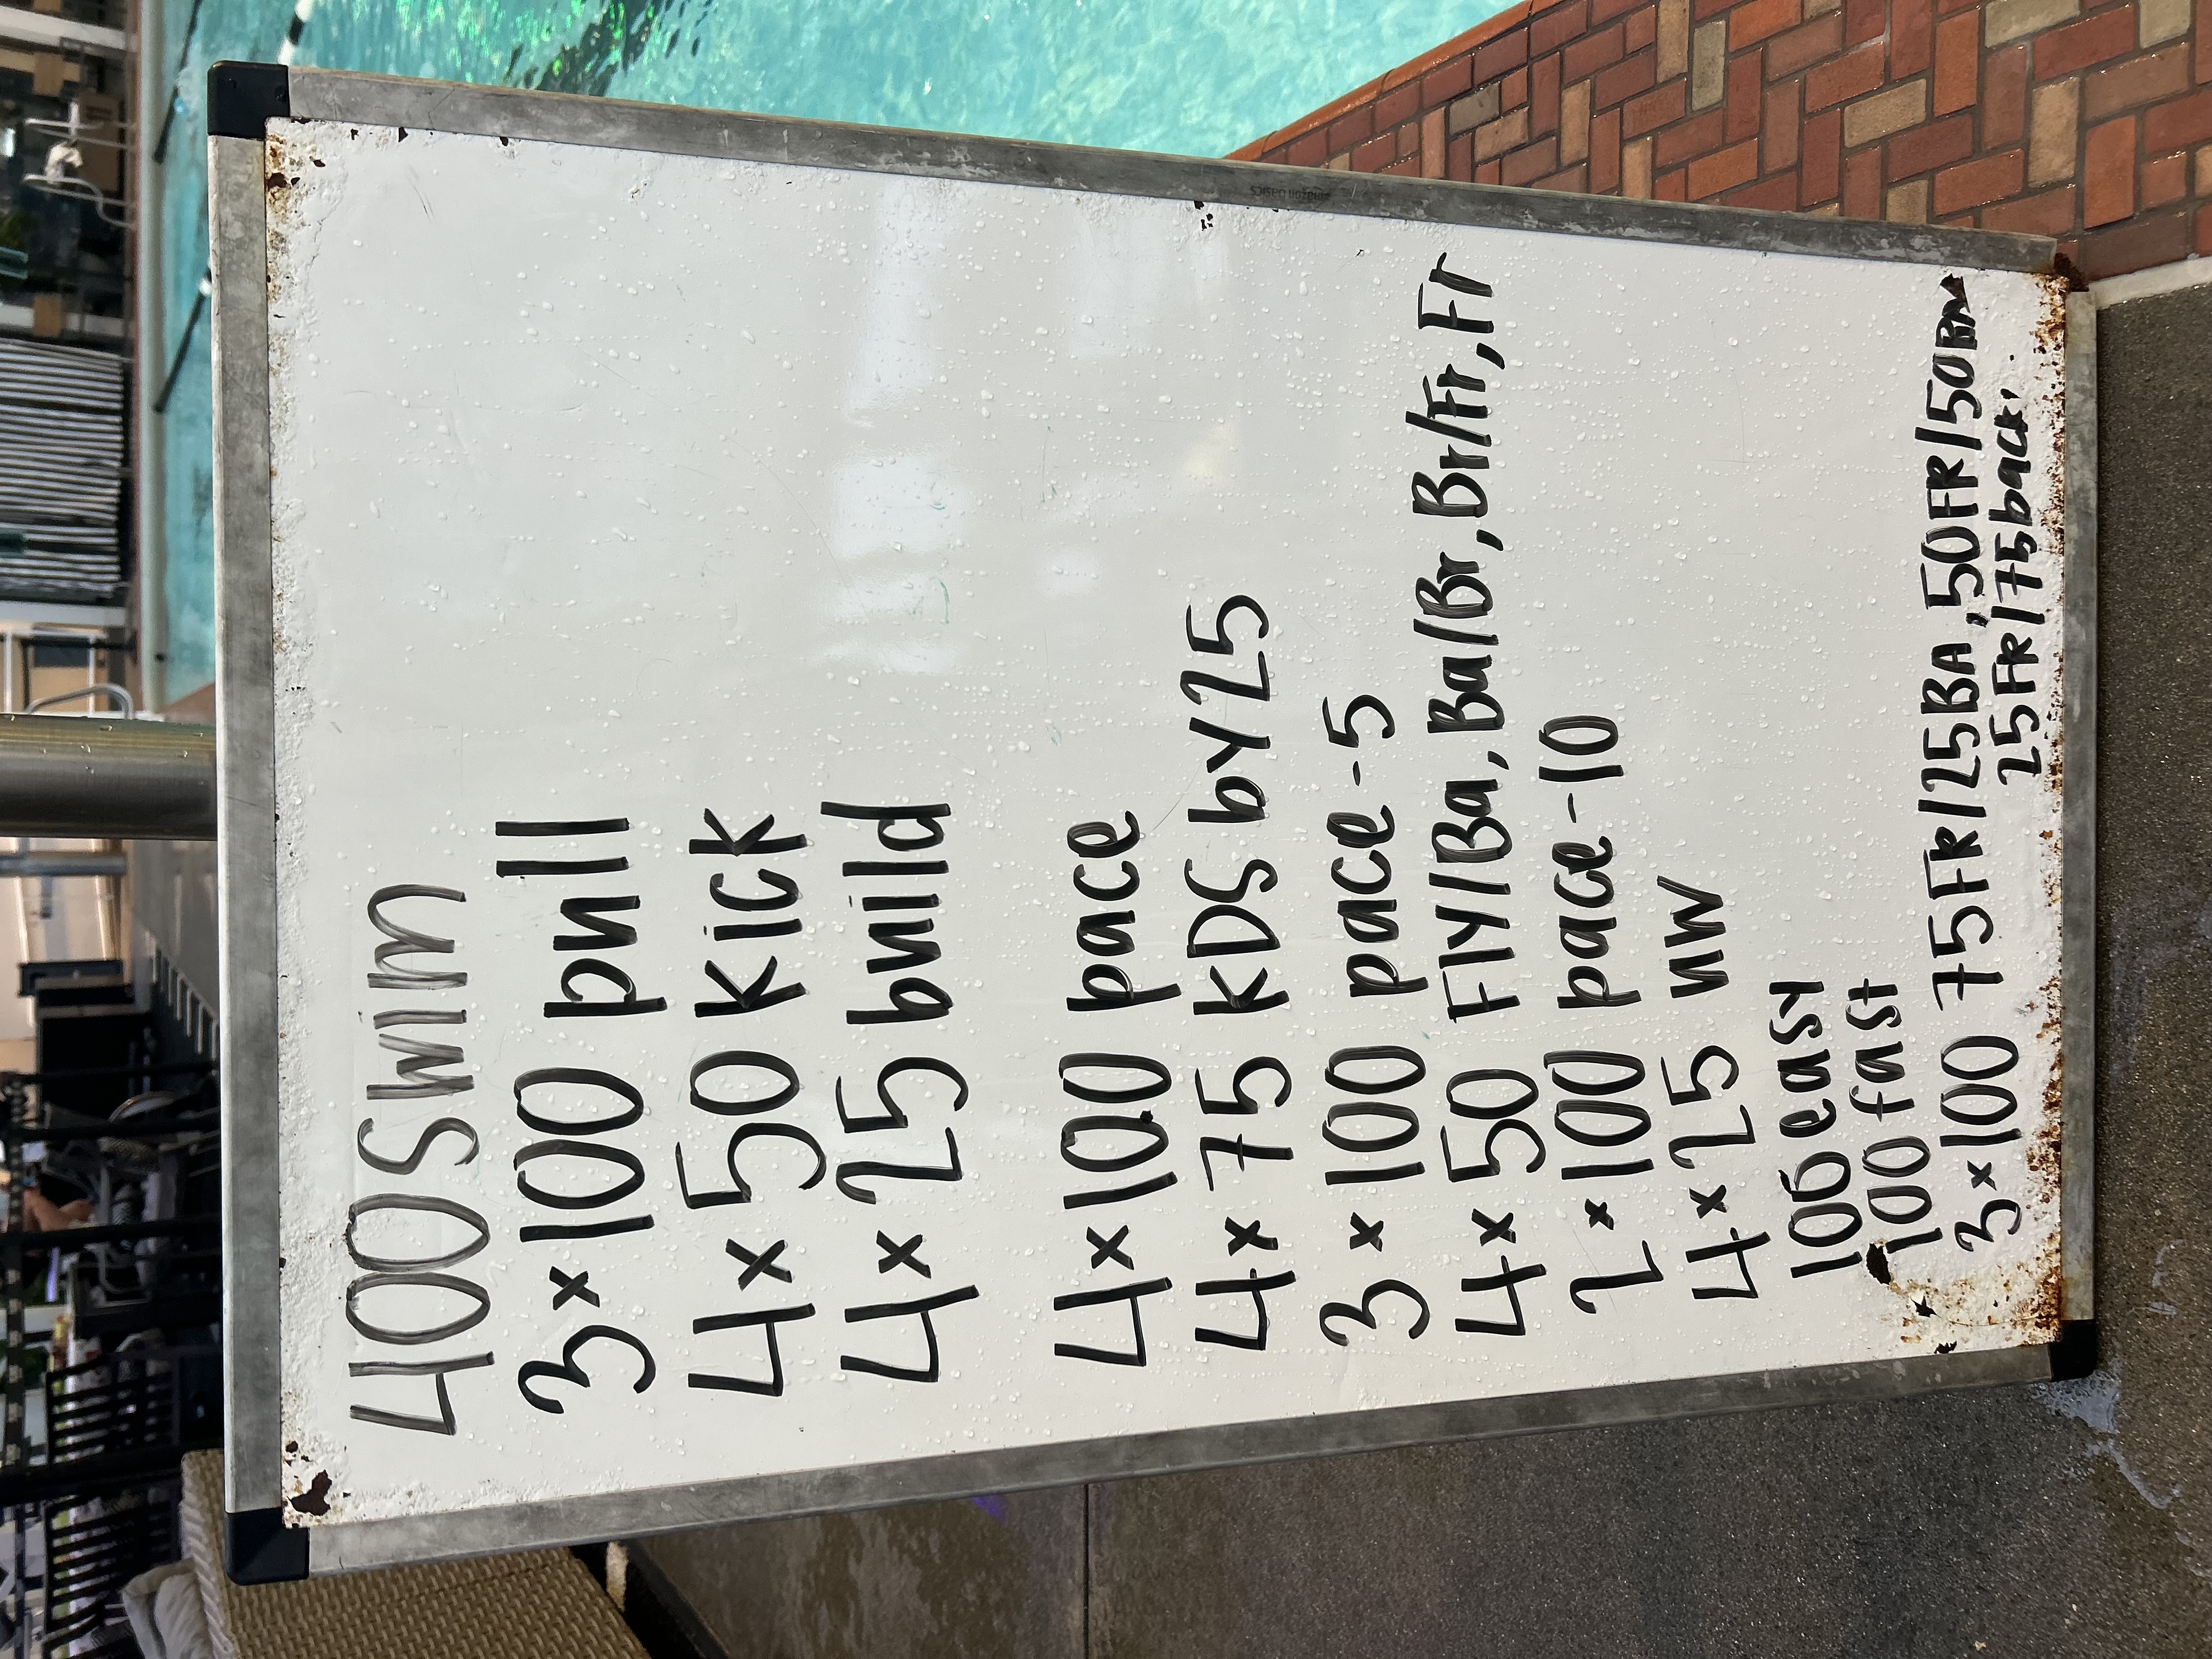 400 Swim
3x100 pull
4x50 kick
4x25 build
4x100 pace
4x75 KDS by 25
3x100 pace-5
4x50 Fly/Ba, Ba/Br, Br/Fr, Fr
2x100 pace-10
4x25 uw
100 easy
100 fast
3x100 75FR/25BA, 50FR/50BA
25FR/75back.
amazon basics